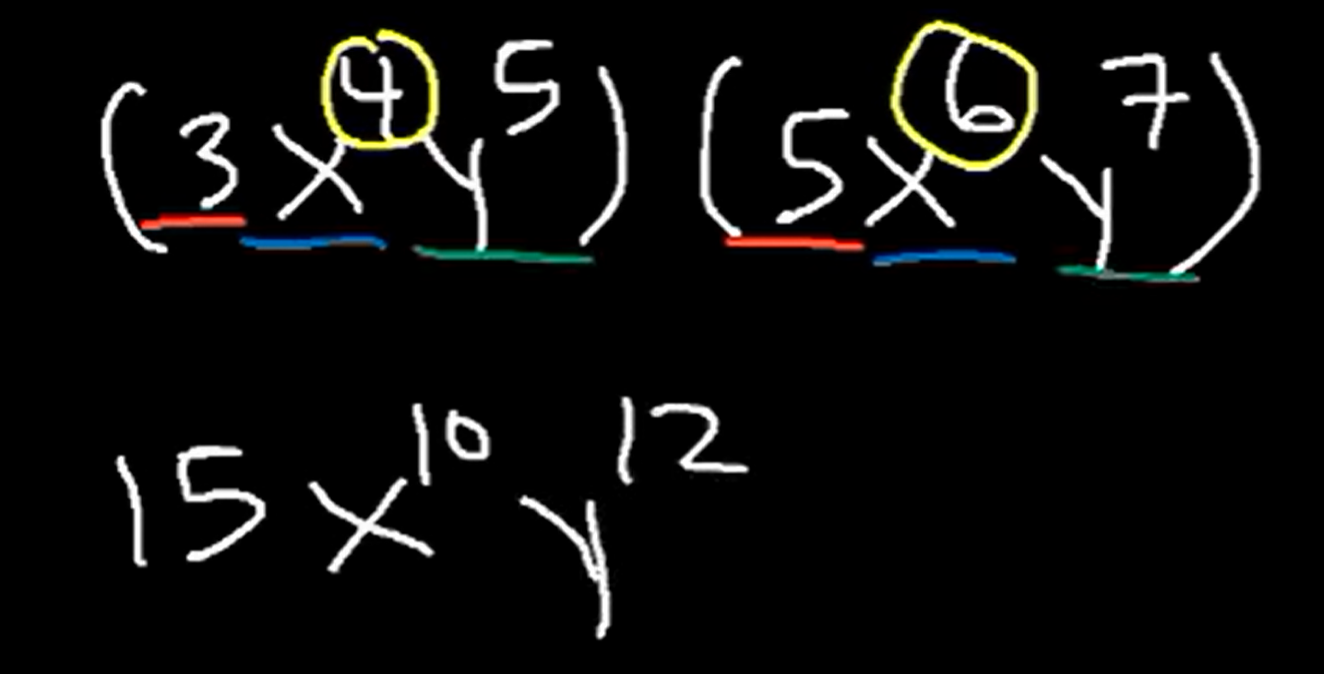 (3x⁴y⁵)(5x⁶y⁷)
15x¹⁰y¹²